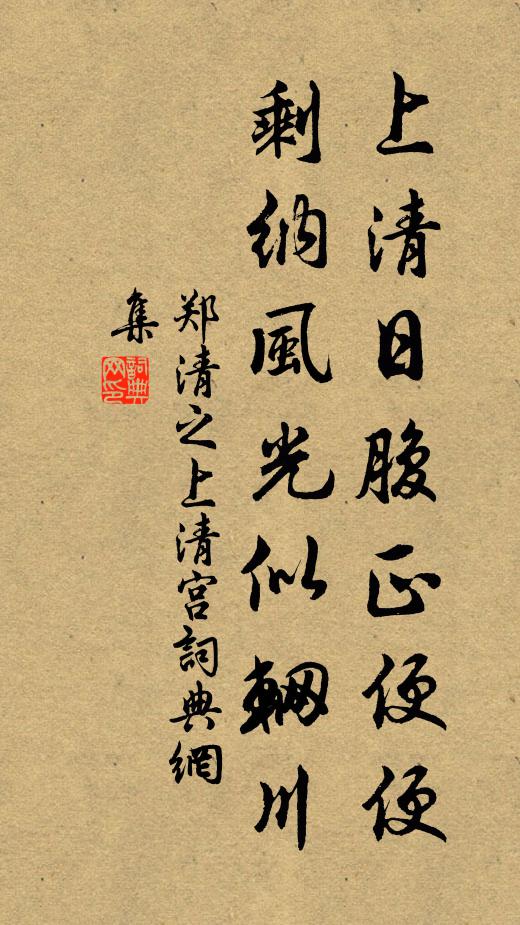 上清日腹正便便
剩納風光似輞川
郑清之上清宫詞典網
集
詞典
网印